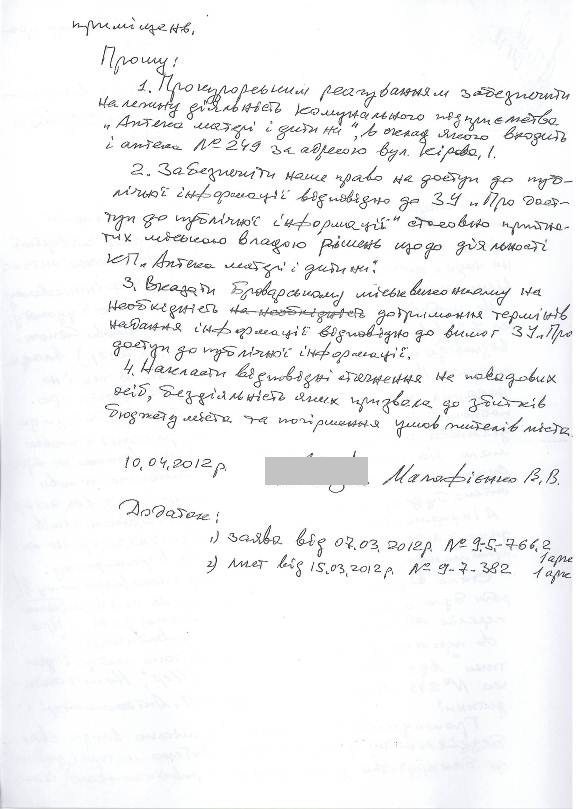 приміщень.
Прошу:
1. Прокурорським реагуванням забезпечити
належну діяльність комунального підприємства
„Аптека матері і дитини", в склад якого входить
і аптека №249 за адресою вул. Кірова, 1.
2. Забезпечити наше право на доступ до пуб-
лічної інформації відповідно до ЗУ „Про дост-
туп до публічної інформації" стосовно прийня-
тих міською владою рішень щодо діяльності
КП „Аптека матері і дитини".
3. Вказати Броварському міськвиконкому на
необхідність на необхідність дотримання термінів
надання інформації відповідно до вимог ЗУ „Про
доступ до публічної інформації.
4. Накласти відповідні стягнення на посадових
осіб, бездіяльність яких призвела до збитків
бюджету міста та погіршення умов жителів міста.
10.04.2012р. Малафієнко В.В.
Додаток:
1) заява від 07.03.2012р. № 9-5-766.2 1 арк
2) лист від 15.03.2012р. № 9-7-382 1 арк